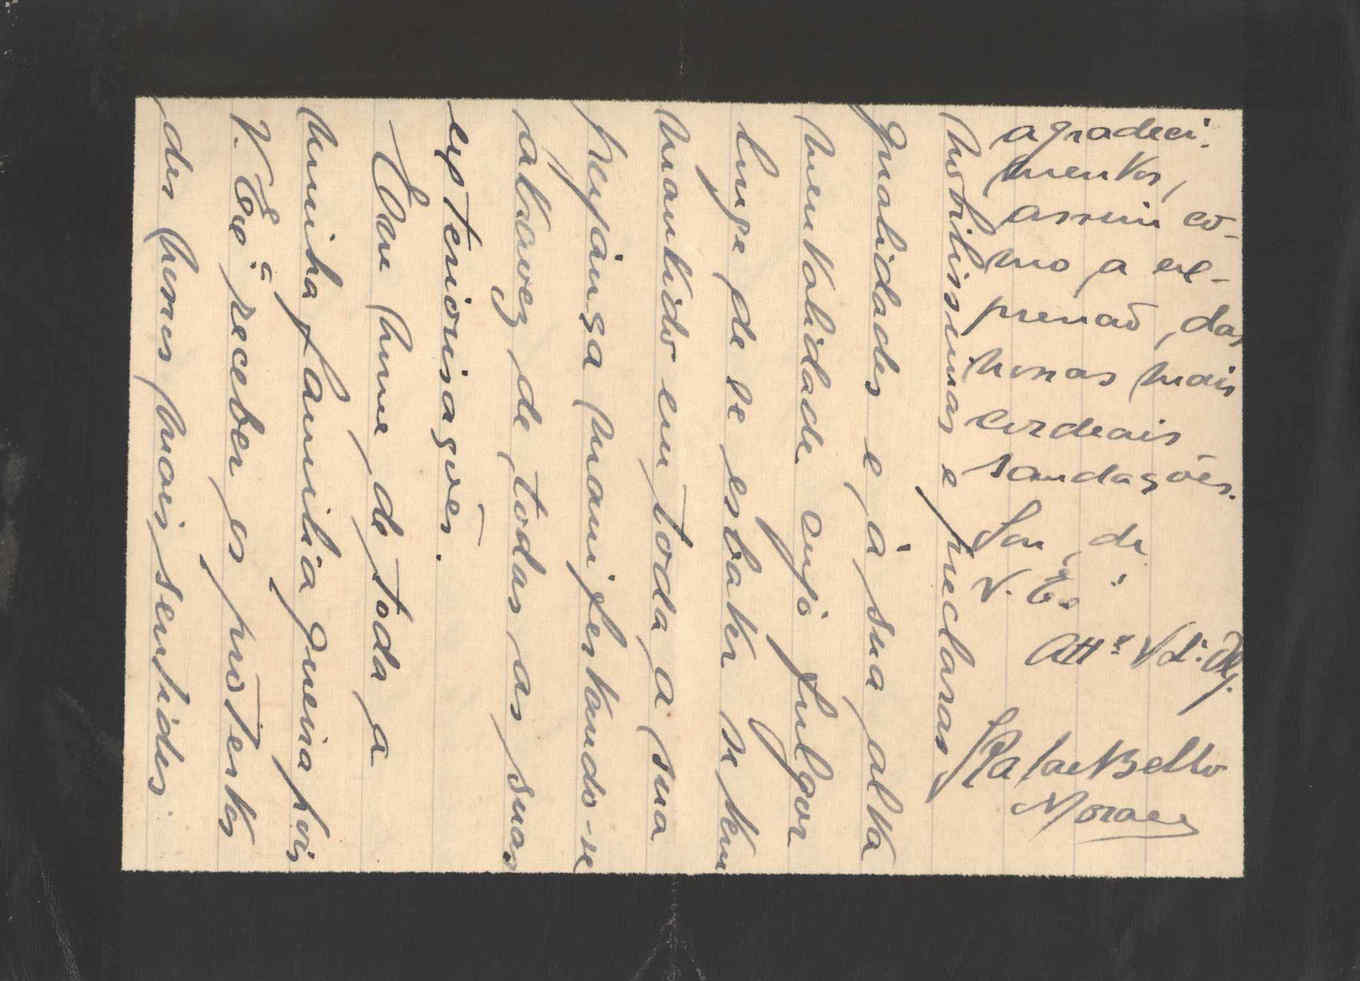 nobilissimas e preclaras
qualidades e á sua alta
mentalidade cujo fulgor
longe de se esbater se tem
mantido em toda a sua
pujança manifestando-se
atravez de todas as suas
expteriorisações.
Em nome de toda a
minha familia queira pois
V. Exª receber os protestos
dos nossos mais sentidos
agradeci-
mentos,
assim co-
mo a ex-
pressaõ das
nossas mais
cordeais
saudações.
Sou de
V. Exª
Attº Vdº. Obg.
Rafael Bello
Moraes